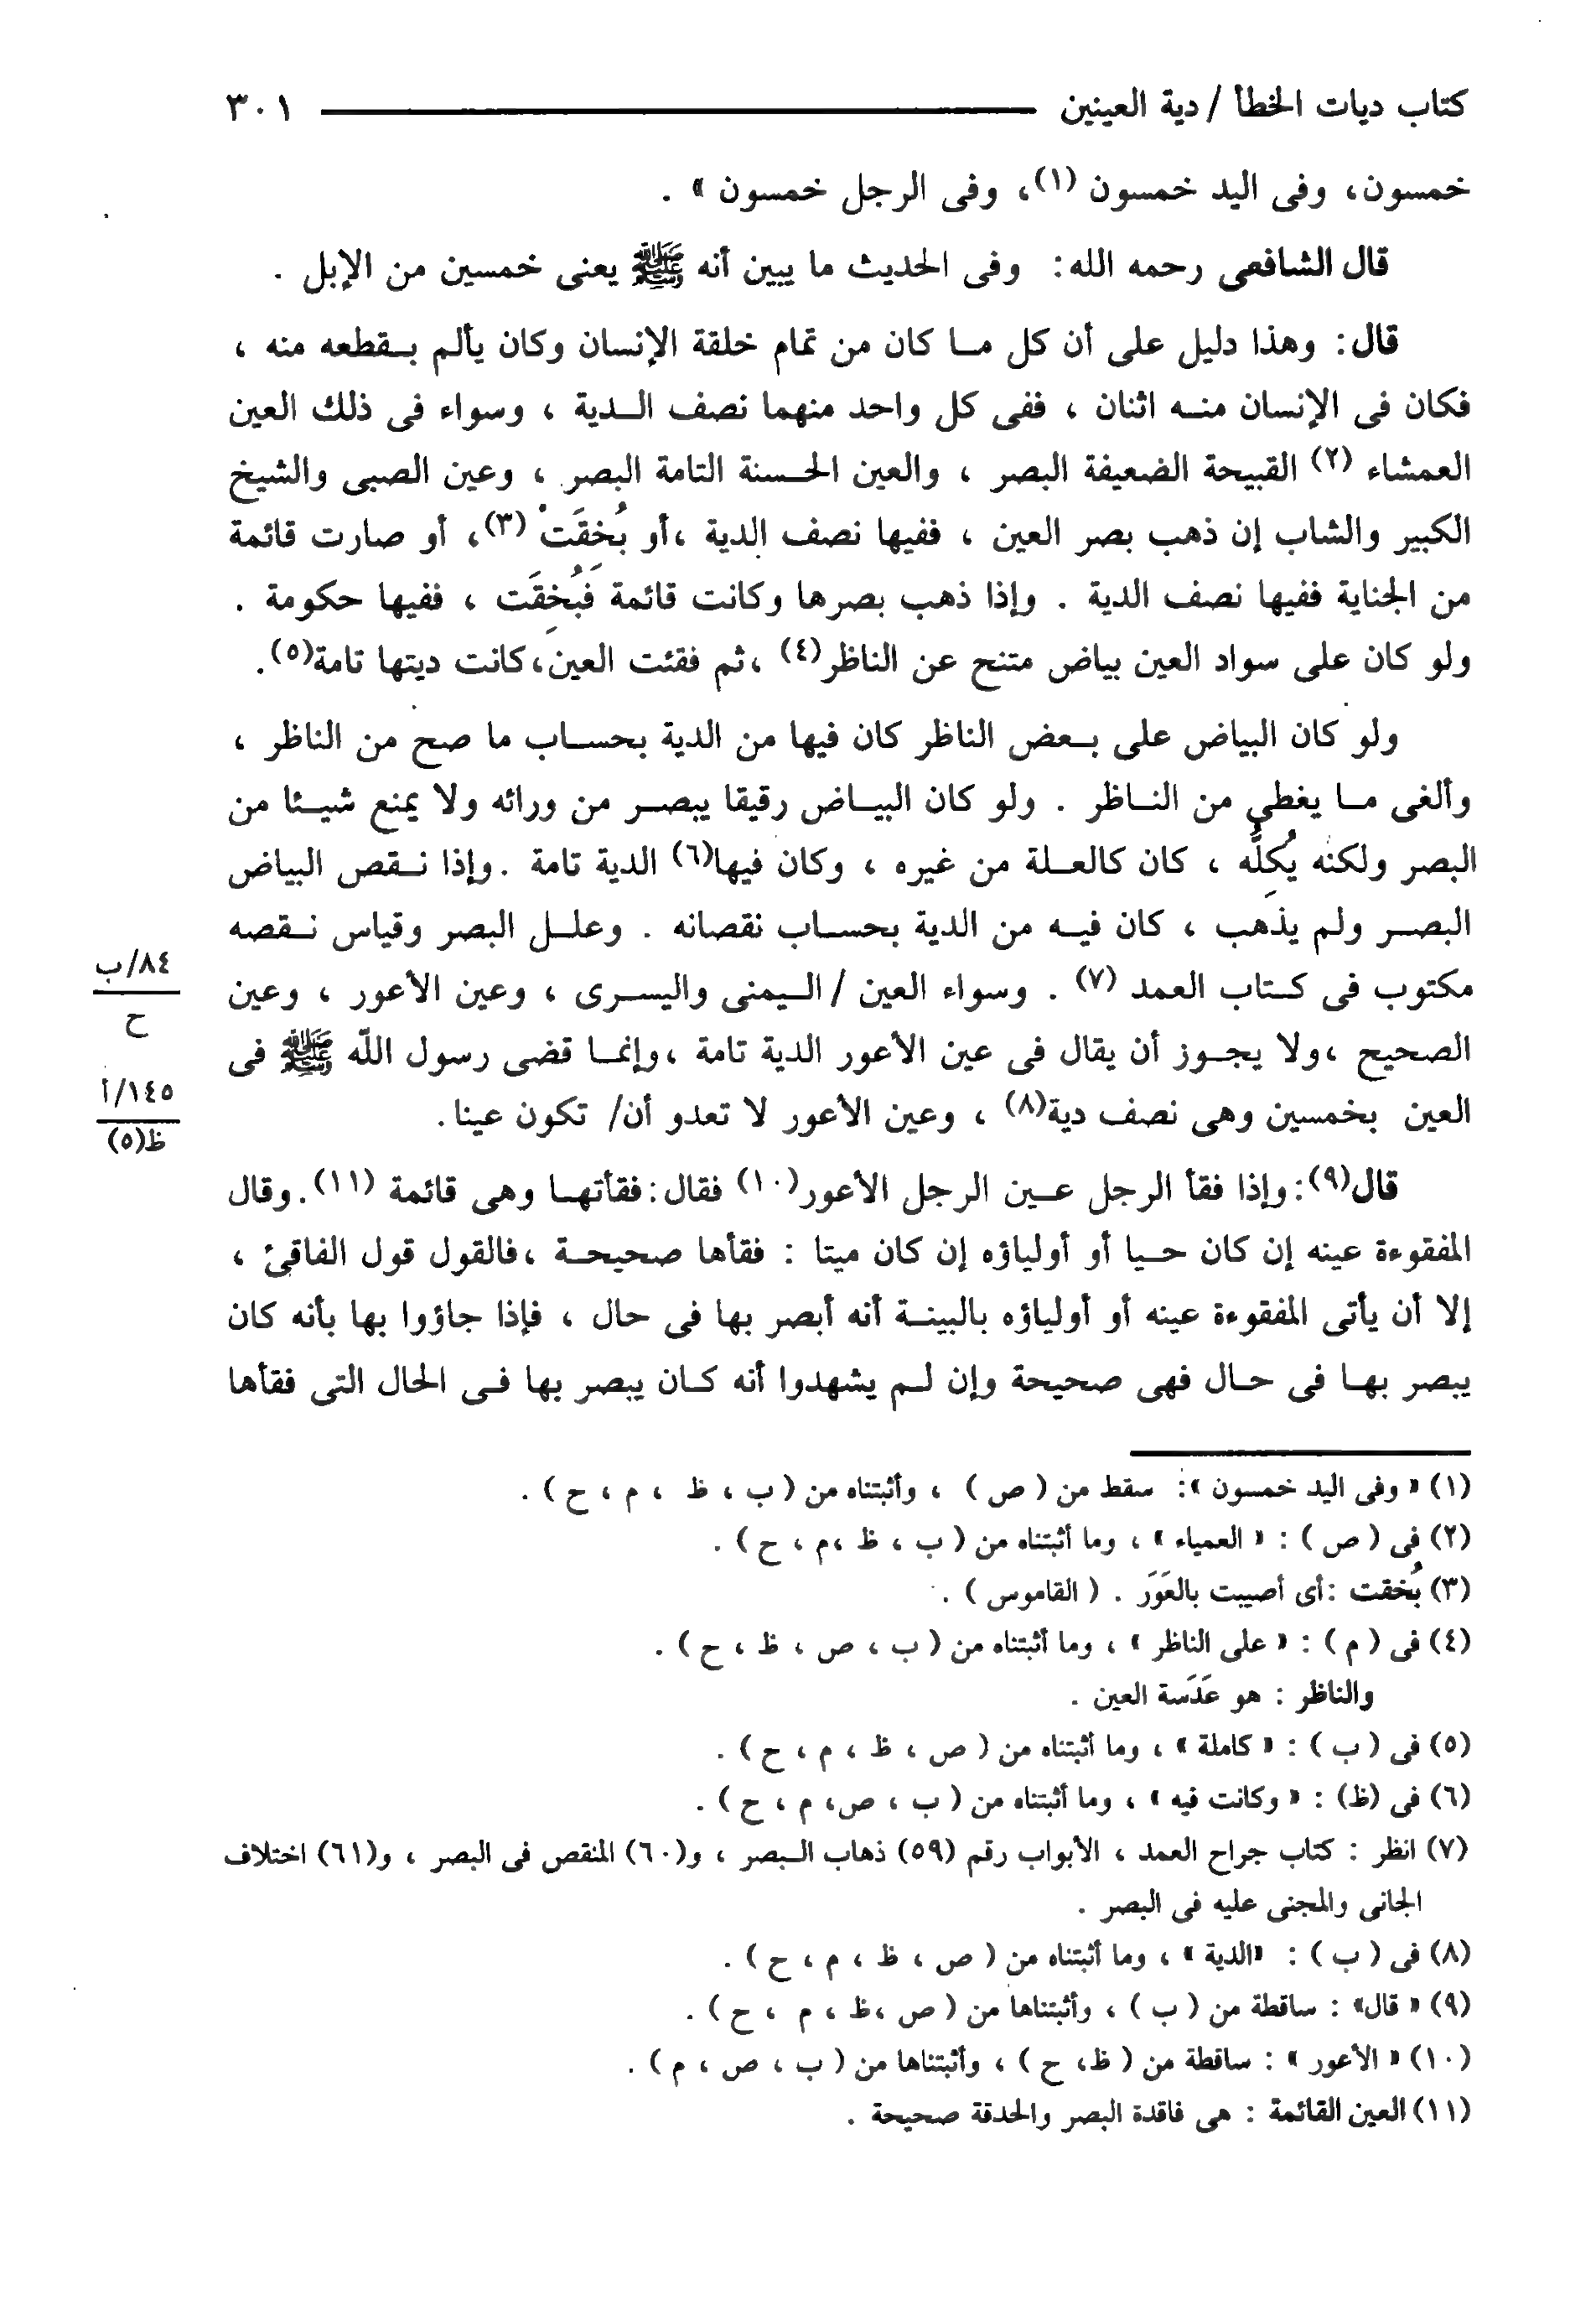 كتاب ديات الخطأ / دية العينين ٣٠١
خمسون، وفى اليد خمسون (١)، وفى الرجل خمسون » .
قال الشافعى رحمه الله: وفى الحديث ما يبين أنه ﷺ يعنى خمسين من الإبل .
قال: وهذا دليل على أن كل ما كان من تمام خلقة الإنسان وكان يألم بقطعه منه ،
فكان فى الإنسان منه اثنان ، ففى كل واحد منهما نصف الدية ، وسواء فى ذلك العين
العمشاء (٢) القبيحة الضعيفة البصر ، والعين الحسنة التامة البصر ، وعين الصبى والشيخ
الكبير والشاب إن ذهب بصر العين ، ففيها نصف الدية ،أو بُخِقَتْ (٣)، أو صارت قائمة
من الجناية ففيها نصف الدية . وإذا ذهب بصرها وكانت قائمة فَبُخِقَت ، ففيها حكومة .
ولو كان على سواد العين بياض متنح عن الناظر(٤) ،ثم فقئت العين،كانت ديتها تامة(٥).
ولو كان البياض على بعض الناظر كان فيها من الدية بحساب ما صح من الناظر ،
وألغى ما يغطى من الناظر . ولو كان البياض رقيقا يبصر من ورائه ولا يمنع شيئا من
البصر ولكنه يُكِلُّه ، كان كالعلة من غيره ، وكان فيها(٦) الدية تامة .وإذا نقص البياض
البصر ولم يذهب ، كان فيه من الدية بحساب نقصانه . وعلل البصر وقياس نقصه
مكتوب فى كتاب العمد (٧) . وسواء العين / اليمنى واليسرى ، وعين الأعور ، وعين
٨٤/ب
ح
الصحيح ،ولا يجوز أن يقال فى عين الأعور الدية تامة ،وإنما قضى رسول الله ﷺ فى
العين بخمسين وهى نصف دية(٨) ، وعين الأعور لا تعدو أن/ تكون عينا.
١٤٥/أ
ظ(٥)
قال(٩): وإذا فقأ الرجل عين الرجل الأعور(١٠) فقال:فقأتها وهى قائمة (١١).وقال
المفقوءة عينه إن كان حيا أو أولياؤه إن كان ميتا : فقأها صحيحة ،فالقول قول الفاقئ ،
إلا أن يأتى المفقوءة عينه أو أولياؤه بالبينة أنه أبصر بها فى حال ، فإذا جاؤوا بها بأنه كان
يبصر بها فى حال فهى صحيحة وإن لم يشهدوا أنه كان يبصر بها فى الحال التى فقأها
(١) « وفى اليد خمسون »: سقط من ( ص ) ، وأثبتناه من ( ب ، ظ ، م ، ح ) .
(٢) فى ( ص ) : « العمياء » ، وما أثبتناه من ( ب ، ظ ،م ، ح ) .
(٣) بُخقت :أى أصيبت بالعَوَر . ( القاموس ) .
(٤) فى ( م ) : « على الناظر » ، وما أثبتناه من ( ب ، ص ، ظ ، ح ) .
والناظر : هو عَدَسة العين .
(٥) فى ( ب ) : « كاملة » ، وما أثبتناه من ( ص ، ظ ، م ، ح ) .
(٦) فى (ظ) : « وكانت فيه » ، وما أثبتناه من ( ب ، ص، م ، ح ) .
(٧) انظر : كتاب جراح العمد ، الأبواب رقم (٥٩) ذهاب البصر ، و(٦٠) المنقص فى البصر ، و(٦١) اختلاف
الجانى والمجنى عليه فى البصر .
(٨) فى ( ب ) : «الدية » ، وما أثبتناه من ( ص ، ظ ، م ، ح ) .
(٩) « قال» : ساقطة من ( ب ) ، وأثبتناها من ( ص ،ظ ، م ، ح ) .
(١٠) « الأعور » : ساقطة من ( ظ، ح ) ، وأثبتناها من ( ب ، ص ، م ) .
(١١) العين القائمة : هى فاقدة البصر والحدقة صحيحة .